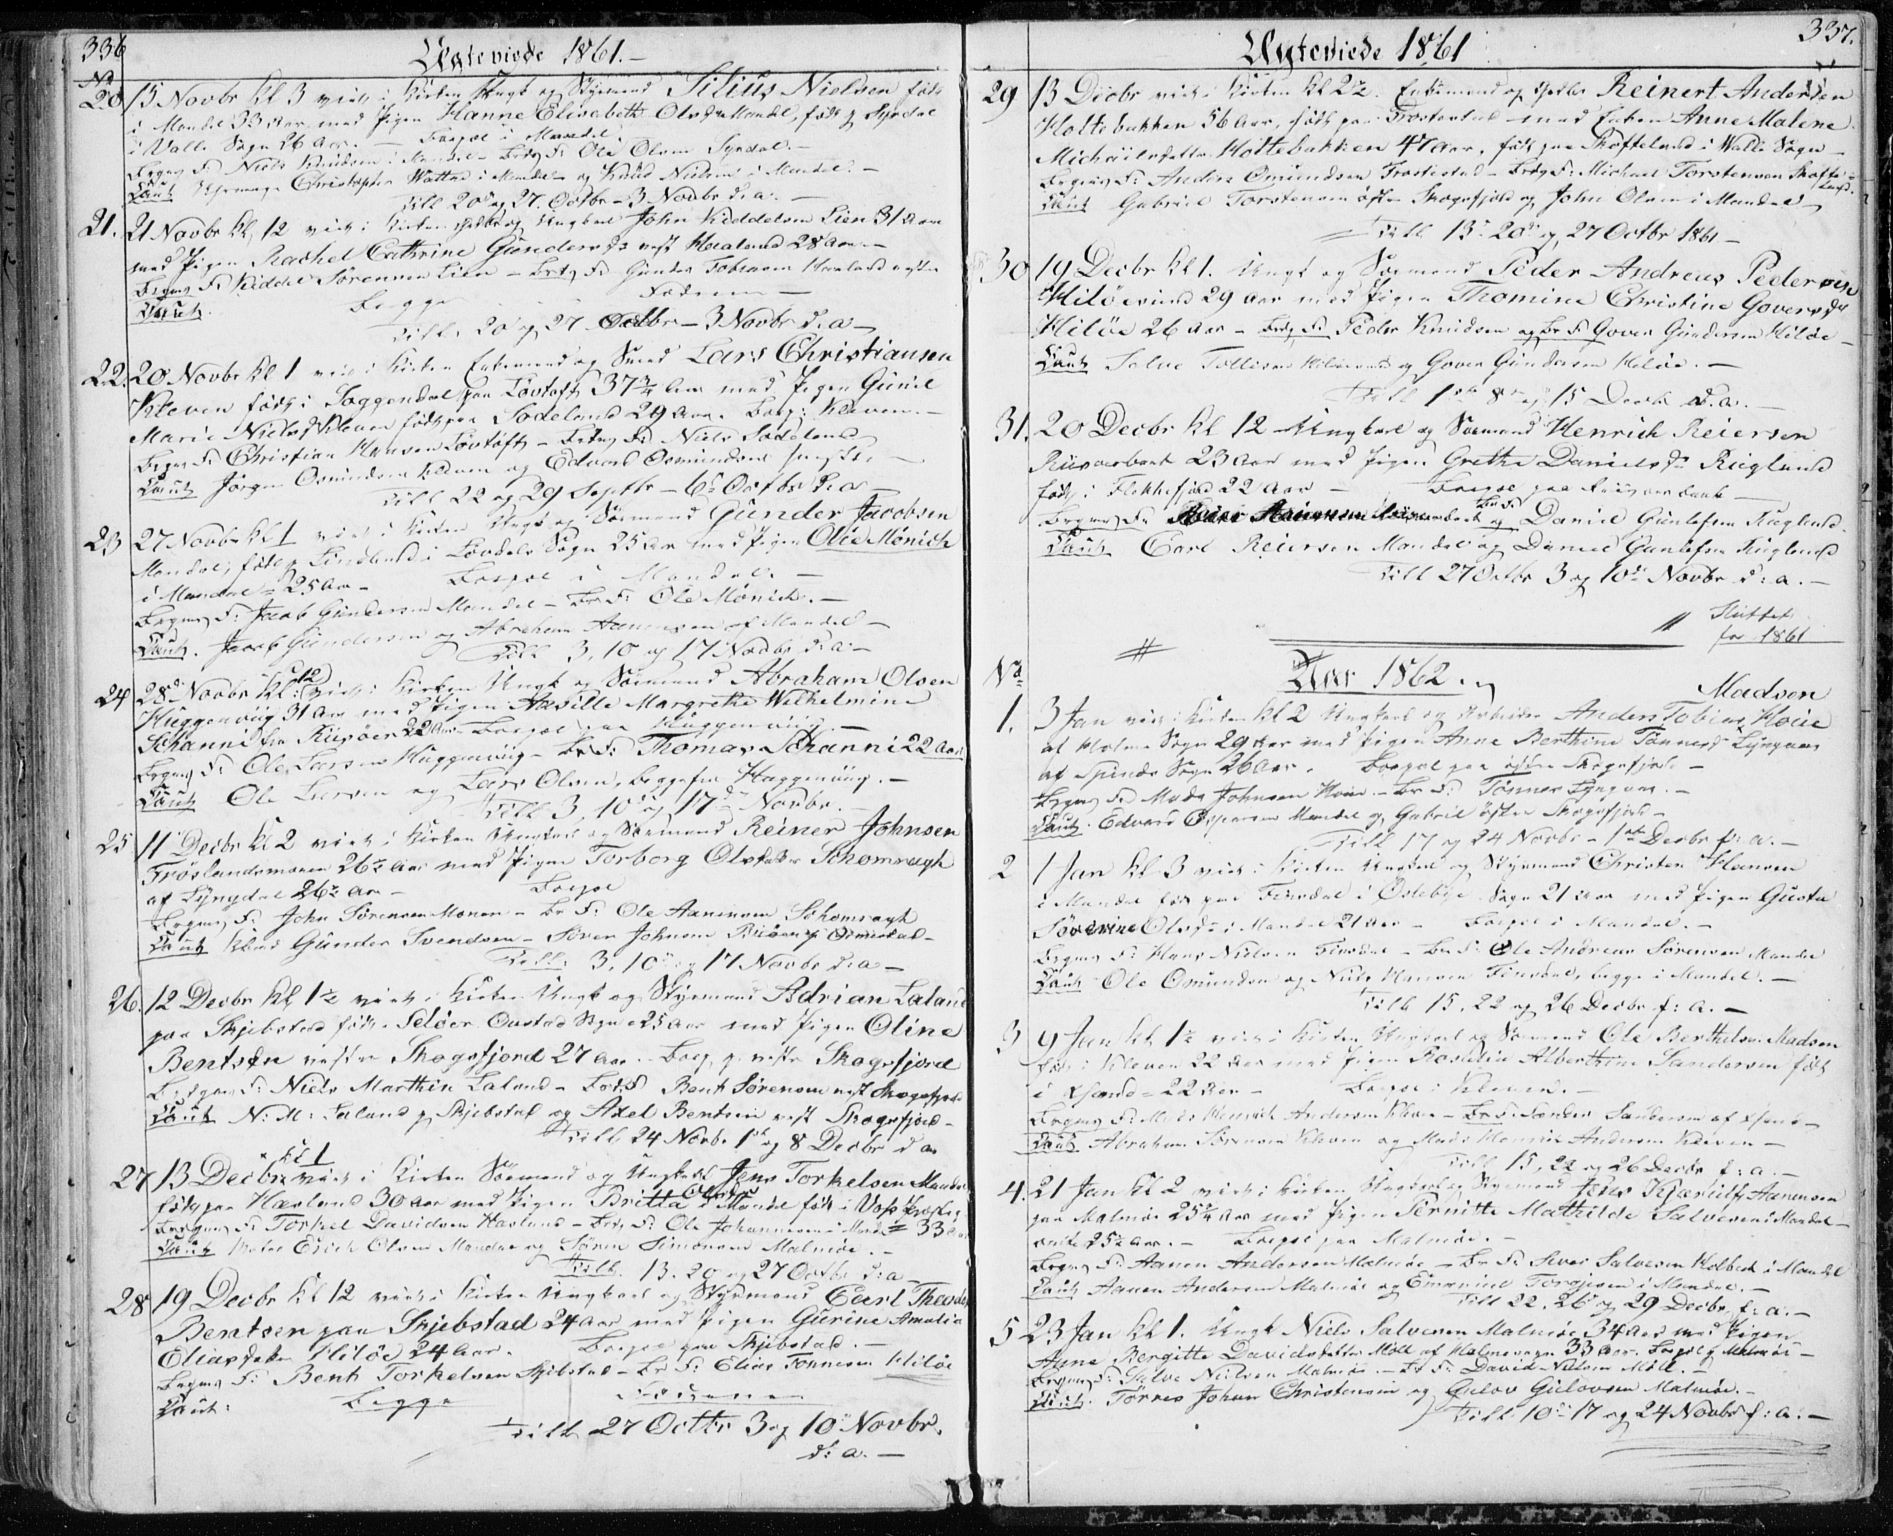 336
Ægteviede 1861.-
No
20 15 Novbr kl 3 viet i Kirken Ungk og Styrmand Silius Nielsen født
i Mandal 33 Aar med Pigen Hanne Elisabeth Olsdr Mandal, født p Syrdal
i Valle Sogn 26 Aar. - Bopæl i Mandal
Brgms F: Niels Knudsen i Mandal - Brdg F: Ole Olsen Syrdal. -
Caut Christopher Wattne i Mandal og Knud Nielsen i Mandal. -
Till 20 og 27 Octbr - 3 Novbr d: a: -
21. 21 Novbr kl, 12 viet i Kirken Ungkarl John Kiddelsen Lien 31 Aar
med Pigen Rachel Cathrine Gundersdr vest Haaland 28 Aar. -
Brgms F: Kiddel Sørensen Lien - Brdg F: Gunder Tobiassen Haaland vestre
Caut. Begge Fædrene -
Till. 20 og 27 Octbr - 3 Novbr d: a -
22. 20 Novbr kl 1 viet i Kirken Enkemand og Smed Lars Christiansen
Kleven født i Soggendal paa Løvtoft 37 3/4 Aar med Pigen Gunil
Marie Nielsd Kleven født paa Sodeland 29 Aar. Boep: Kleven. -
Brgms F: Christian Hansen Løvtoft - Brdg F: Niels Sodeland
Caut Jørgen Osmundsen Kleven og Edvard Osmundsen -
Till 22 og 29 Septbr - 6 Octbr d: a -
23 27 Novbr kl 1 viet i Kirken Ungk og Sømand Gunder Jacobsen
Mandal, født p Lindland i Løvdals Sogn 25 Aar med Pigen Olie Mønich
i Mandal 25 Aar - Boepæl i Mandal. -
Brgms F: Jacob Gundersen Mandal - Br F: Ole Mønich. -
Caut. Jacob Gundersen og Abraham Aanensen af Mandal -
Till 3, 10 og 17 Novbr d: a -
24 28 Novbr kl: 12 viet i Kirken Ungk og Sømand Abraham Olsen
Huggenviig 31 Aar med Pigen Ansille Margrethe Wilhelmine
Schanni fra Riisøer 22 Aar - Boepæl paa Huggenviig -
Brgms F: Ole Larsen Huggenviig - Br F: Thomas Schanni 22 Aar
Caut Ole Larsen og Lars Olsen, begge fra Huggenviig. -
Till 3, 10 og 17 Novbr.
25 11 Decbr kl 2 viet i Kirken Ungkarl og Sømand Reiner Johnsen
Frøslandsmonen 26 1/2 Aar med Pigen Torborg Olsdatter Schomragh
af Lyngdal 26 1/2 Aar - Boepæl
Brgms F: John Sørensen Monen - Br F: Ole Aanensen Schomragh
Caut Gunder Svendsen - Søren Johnsen
Till: 3, 10 og 17 Novbr d: a -
26. 12 Decbr kl 1 1/2 viet i Kirken Ungk og Styrmand Adrian Laland
paa Skjebstad født Seløer Oustad Sogn 25 Aar med Pigen Oline
Bentsen vestre Skogsfjord 27 Aar. - Boep. p. vestre Skogsfjord
Brdgms F: Niels Marthin Laland - Brds F: Bent Sørensen vest Skogsfjord
Caut N: M: Laland p Skjebstad og Axel Bentsen vest Skogsfjord -
Till 24 Novbr 1st og 8 Decbr d a
27 13 Decbr kl 1 viet i Kirken Sømand og Ungkarl Jens Torkelsen Mandal
født paa Haaland 30 Aar med Pigen Britta Olsdr i Mandal født i Vos
Brdgms F: Torkel Davidsen Haaland - Brds F: Ole Johannesen i Mandal = 33 Aar
Caut Erich Olsen Mandal og Søren Simonsen Malmøe. -
Till. 13. 20 og 27 Octbr d: a -
28 19 Decbr kl 12 viet i Kirken Ungkarl og Styrmand Carl Theodor
Bentsen paa Skjebstad 24 Aar med Pigen Gurine Amalia
Eliasdatter Hiløe 24 Aar. - Boepæl paa Skjebstad. -
Brgms F: Bent Torkelsen Skjebstad - Br F: Elias Tønnesen Hiløe
Caut: Begge Fædrene
Till 27 Octbr 3 og 10 Novbr.
d: a. -
337.
Ægteviede 1861
29 13 Decbr viet i Kirken kl 2 1/2 Enkemand og Reinert Andersen
Holtebakken 56 Aar, født paa Frostestad med Enken Anne Malene
Michaelsdatter Holtebakken 47 Aar, født paa Skofteland i Valle Sogn -
Brgms F: Anders Omundsen Frostestad - Brdg F: Michael Torstensen Skofteland.
Caut Gabriel Torstensen østre Skogsfjord og John Olsen i Mandal
Till 13 20 og 27 Octbr 1861 -
30 19 Decbr kl 1. Ungk og Sømand Peder Andreas Pedersen
Hiløesund 29 Aar med Pigen Thomine Christine Goversdr
Hiløe 26 Aar - Brdg F: Peder Knudsen og Br F: Gover Gundersen Hiløe -
Caut Salve Tollisen Hiløesund og Gover Gundersen Hiløe. -
Till 1ste 8de og 15 Decbr d.a. -
31. 20 Decbr kl 12 Ungkarl og Sømand Henrich Reiersen
Riisøerbank 23 Aar med Pigen Grethe Danielsdr Kuglund
født i Flekkefjord 22 Aar - Boepæl paa Riisøerbank -
Brgms F: og Br F: Daniel Gunlefsen Kuglund
Caut Carl Reiersen Mandal og Daniel Gunlefsen Kuglund
Till 27 Octbr 3 og 10de Novbr d: a. -
Sluttet
for 1861
No Aar 1862.
1. 3 Jan viet i Kirken kl 2 Ungkarl og Arbeider Anders Tobias Madsen Houe
af Holme Sogn 29 Aar med Pigen Anne Berthine Tønnesdr Lyngaas
af Spinds Sogn 26 Aar. Boepæl paa østre Skogsfjord -
Brgms F: Mads Johnsen Houe. - Br F: Tønnes Lyngaas. -
Caut. Edvard Mandal og Gabriel østre Skogsfjord -
Till 17 og 24 Novbr - 1ste Decbr f: a. -
2 1 Jan kl 3 viet i Kirken Ungkarl og Styrmand Christen Hansen
i Mandal født paa Finsdal i Oslebye Sogn 21 Aar med Pigen Gusta
Severine Olsdr i Mandal 21 Aar - Boepæl i Mandal. -
Brgms F: Hans Nielsen Finsdal - Br F: Ole Andreas Sørensen Mandal
Caut Ole Omundsen og Niels Hansen Finsdal, begge i Mandal. -
Till 15, 22 og 26 Decbr f: a. -
3 9 Jan kl 1 1/2 viet i Kirken Ungkarl og Sømand Ole Berthelsen Madsen
født i Kleven 22 Aar med Pigen Rosalie Alberthine Sandersen født
i Xsand = 22 Aar - Boepæl i Kleven. -
Brgms F: Mads Henrich Andersen Kleven - Br F: Sander Sandersen af Xsand -
Caut Abraham Sørensen Kleven og Mads Henrich Andersen Kleven -
Till 15, 22 og 26 Decbr f: a. -
4. 21 Jan kl 2 viet i Kirken Ungkarl og Styrmand Jens Kjærulf Aanensen
paa Malmøe 25 1/2 Aar med Pigen Pernille Mathilde Salvesen i Mandal
25 1/2 Aar. - Boepæl paa Malmøe. -
Brgms F: Aanen Andersen Malmøe - Br F: Sivert Salvesen Holbek i Mandal
Caut Aanen Andersen Malmøe og Emanuel Torgjesen i Mandal. -
Till 22, 26 og 29 Decbr f: a. -
5 23 Jan kl 1. Ungk Niels Salvesen Malmøe, 34 Aar med Pigen
Anne Bergitte Davidsdatter Møll af Holmesogn 33 Aar. Boepæl p Malmøe -
Brgms F: Salve Nielsen Malmøe - Br F: David Nielsen Møll. -
Caut. Tønnes Johan Christensen og Gulov Gulovsen Malmøe. -
Till 10de 17 og 24 Novbr f: a: -